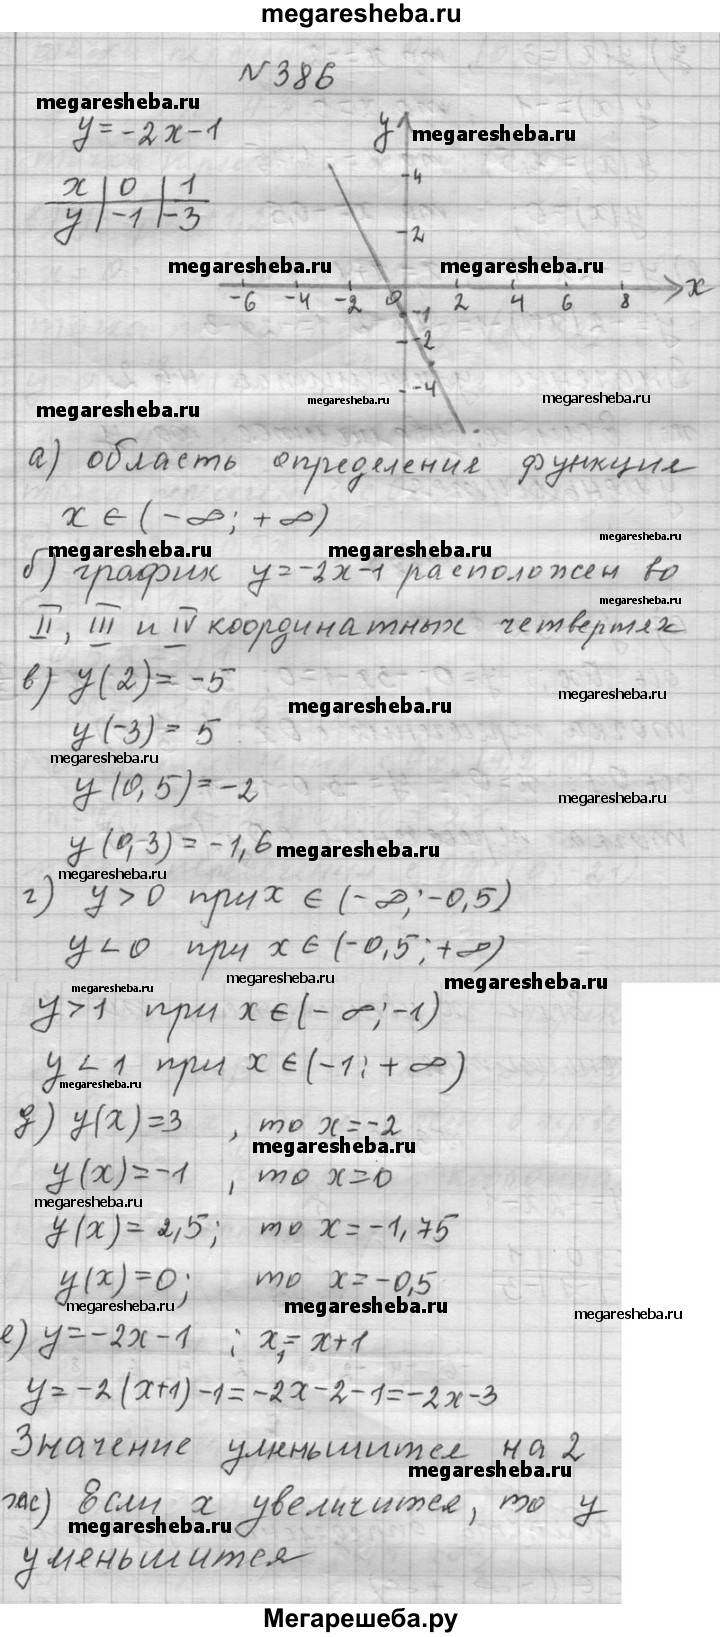 megaresheba.ru
№386
megaresheba.ru
y=-2x-1
y
megaresheba.ru
x 0 1
y -1 -3
4
2
megaresheba.ru
megaresheba.ru
-6 -4 -2 0 2 4 6 8 x
-1
-2
-4
megaresheba.ru
megaresheba.ru
megaresheba.ru
а) область определения функции
x∈(-∞;+∞)
megaresheba.ru
megaresheba.ru
megaresheba.ru
б) график y=-2x-1 расположен во
megaresheba.ru
II, III и IV координатных четвертях
в) y(2)=-5
megaresheba.ru
megaresheba.ru
y(-3)=5
megaresheba.ru
y(0,5)=-2
megaresheba.ru
y(0,3)=-1,6
megaresheba.ru
megaresheba.ru
г) y>0 при x∈(-∞;-0,5)
y<0 при x∈(-0,5;+∞)
megaresheba.ru
megaresheba.ru
megaresheba.ru
y>1 при x∈(-∞;-1)
y<1 при x∈(-1;+∞)
megaresheba.ru
д) y(x)=3, то x=-2
megaresheba.ru
y(x)=-1, то x=0
megaresheba.ru
y(x)=2,5; то x=-1,75
y(x)=0; то x=-0,5
megaresheba.ru
megaresheba.ru
megaresheba.ru
е) y=-2x-1; x₁=x+1
y=-2(x+1)-1=-2x-2-1=-2x-3
Значение уменьшится на 2
megaresheba.ru
ж) Если x увеличится, то y
megaresheba.ru
уменьшится
Мегарешеба.ру